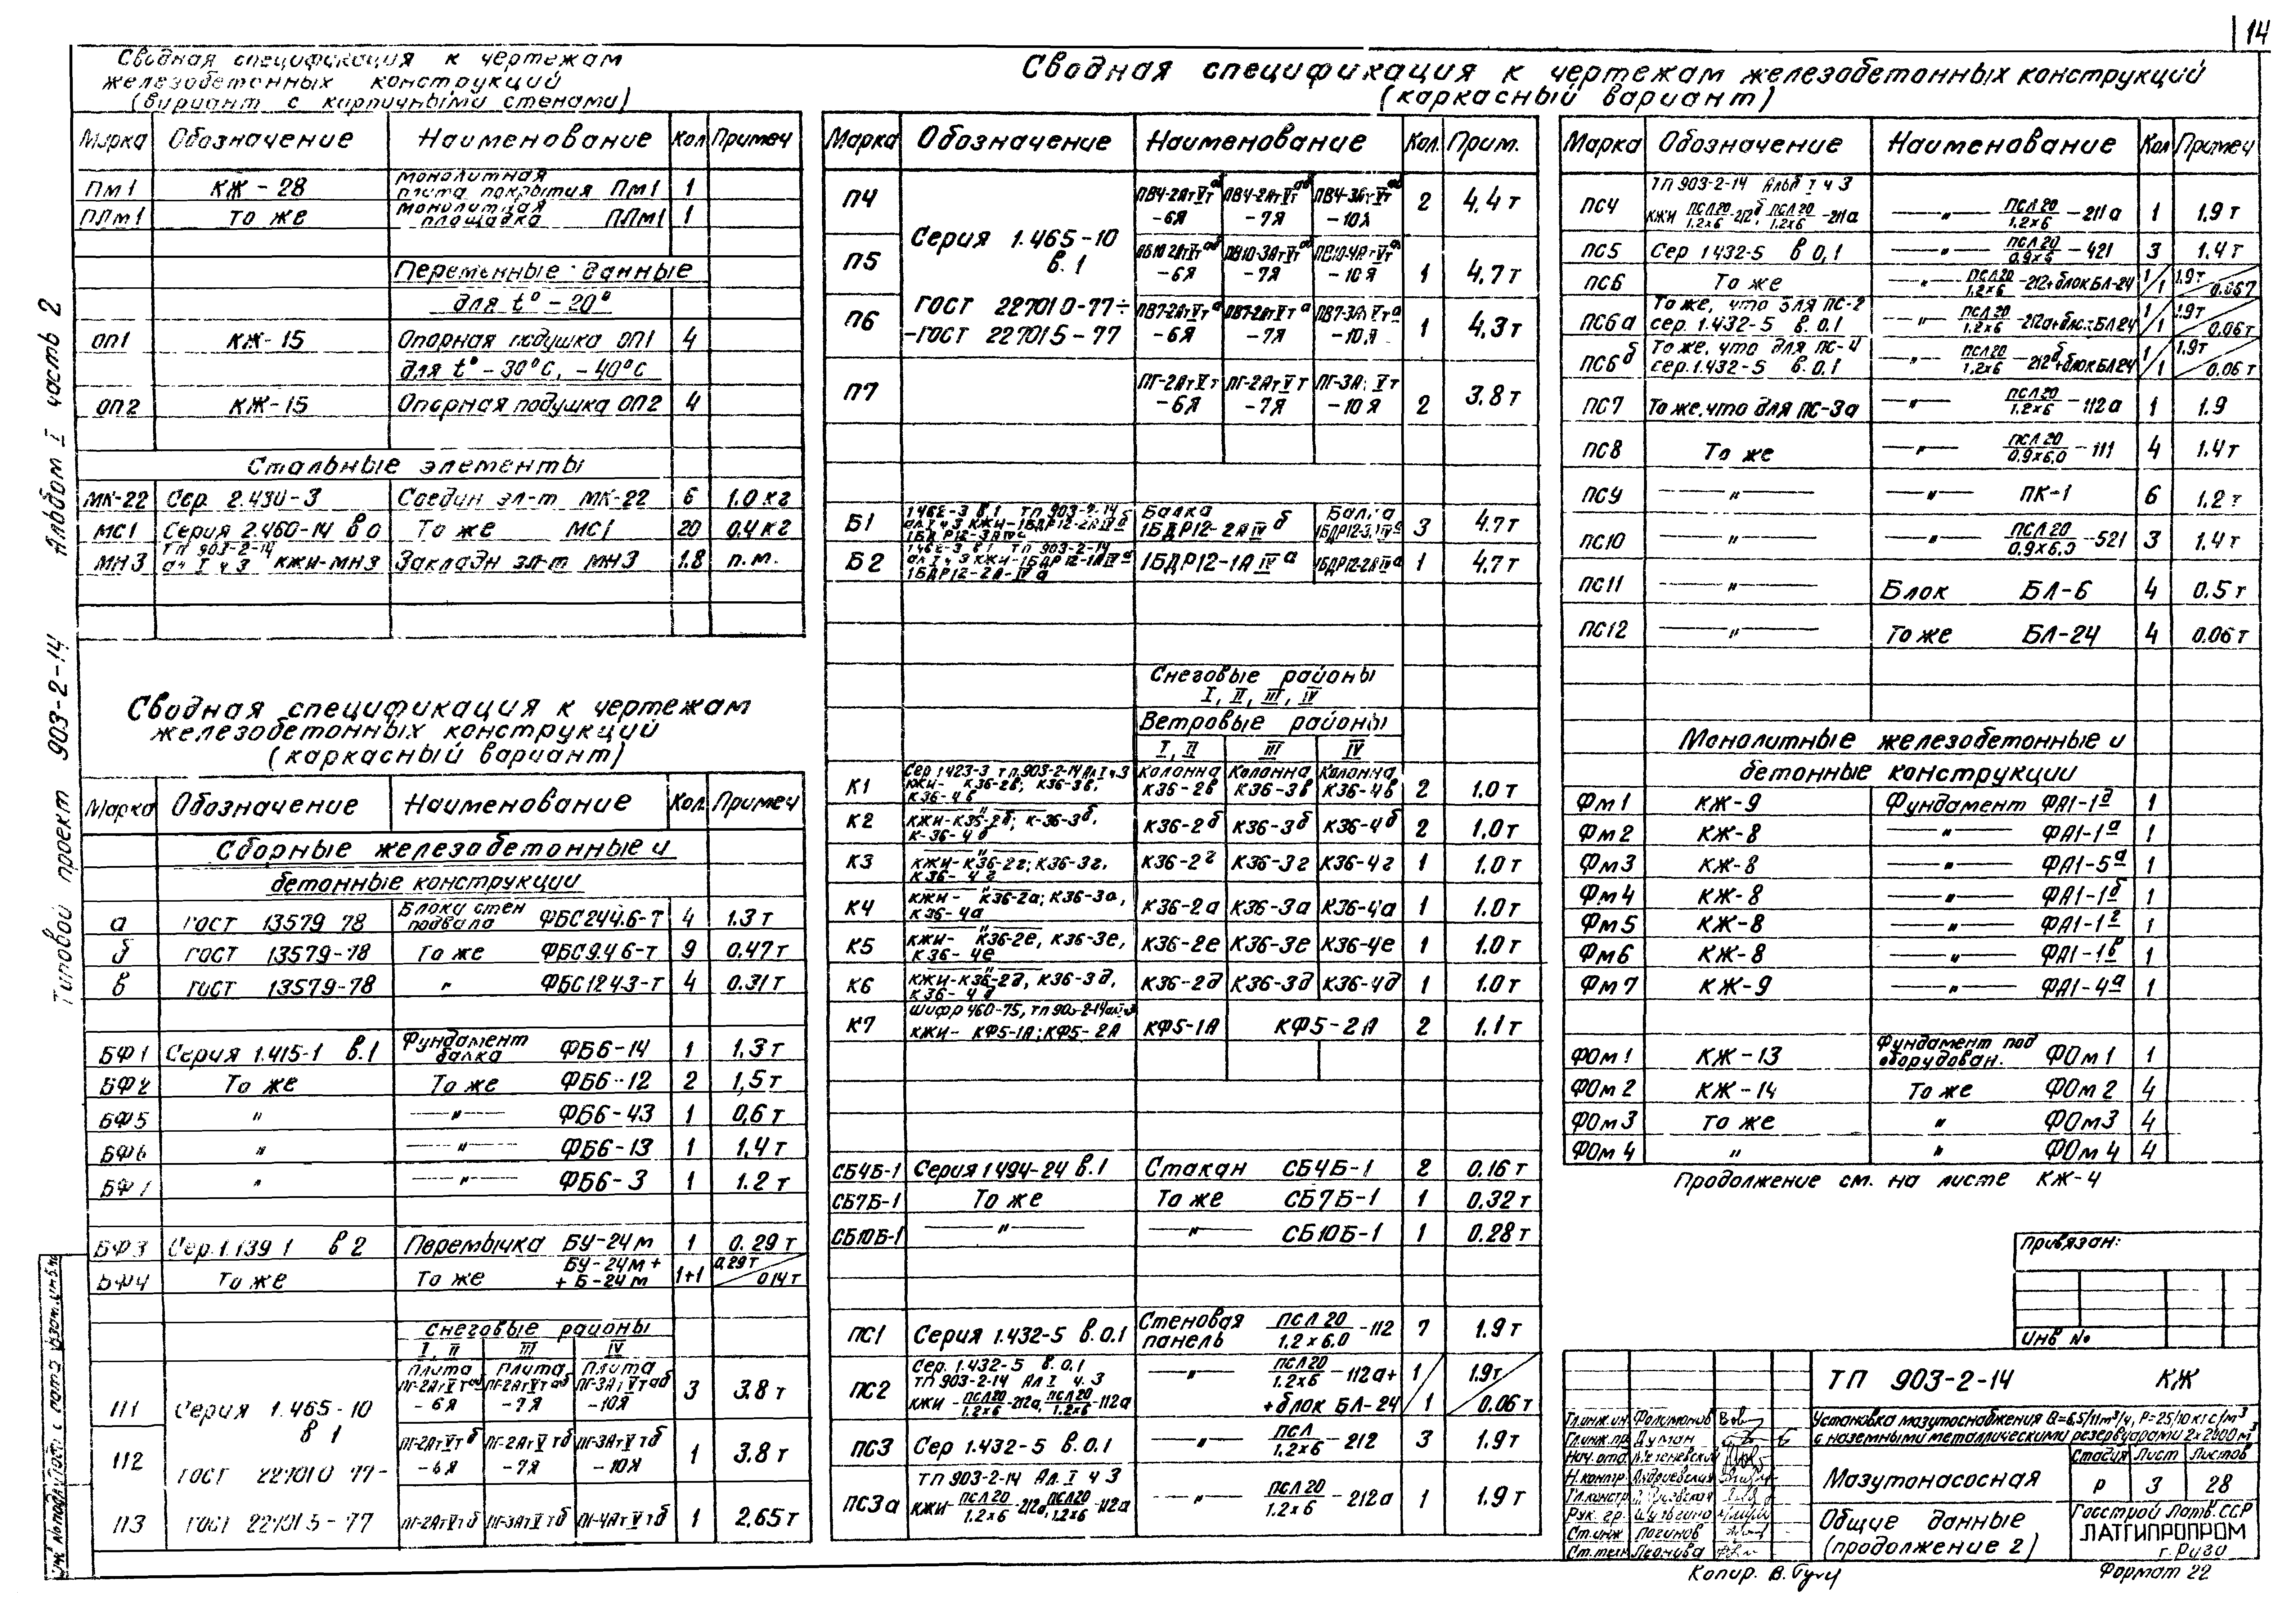 14
Альбом I часть 2
Типовой проект 903-2-14
Сводная спецификация к чертежам
железобетонных конструкций
(вариант с кирпичными стенами)
Марка Обозначение Наименование Кол Примеч
Пм1 КЖ-28 Монолитная плита покрытия Пм1 1
ПЛм1 то же Монолитная площадка ПЛм1 1
Переменные данные
для t° -20°
ОП1 КЖ-15 Опорная подушка ОП1 4
для t° -30°С, -40°С
ОП2 КЖ-15 Опорная подушка ОП2 4
Стальные элементы
МК-22 Сер. 2.430-3 Соедин эл-т МК-22 6 1.0 кг
МС1 Серия 2.460-14 в 0 То же МС1 20 0.4 кг
МН3 ТП 903-2-14 ал I ч 3 КЖИ-МН3 Закладн эл-т МН3 1.8 п.м.
Сводная спецификация к чертежам
железобетонных конструкций
(каркасный вариант)
Марка Обозначение Наименование Кол. Примеч
Сборные железобетонные и
бетонные конструкции
а ГОСТ 13579 78 Блоки стен подвала ФБС24.4.6-Т 4 1.3 т
б ГОСТ 13579-78 То же ФБС9.4 6-т 9 0.47 т
в ГОСТ 13579-78 " ФБС12 4.3-т 4 0.31 т
БФ1 Серия 1.415-1 в.1 Фундамент балка ФБ6-14 1 1,3 т
БФ2 То же То же ФБ6-12 2 1,5 т
БФ5 " —"— ФБ6-43 1 0,6 т
БФ6 " —"— ФБ6-13 1 1,4 т
БФ7 " —"— ФБ6-3 1 1.2 т
БФ3 Сер. 1.139 1 в 2 Перемычка БУ-24м 1 0.29 т
БФ4 То же То же БУ-24м + + Б-24м 1+1 0.29т 0.14т
Снеговые районы
I, II III IV
Плита Плита Плита
П1 Серия 1.465-10 в 1 ПГ-2АтVтаб -6Я ПГ-2АтVтаб -7Я ПГ-3АтVтаб -10Я 3 3.8 т
П2 ГОСТ 227010 77- ПГ-2АтVтб -6Я ПГ-2АтVтб -7Я ПГ-3АтVтб -10Я 1 3.8 т
П3 ГОСТ 227015-77 ПГ-2АтVтб ПГ-3АтVтб ПГ-4АтVтб 1 2,65 т
Сводная спецификация к чертежам железобетонных конструкций
(каркасный вариант)
Марка Обозначение Наименование Кол. Прим.
П4 ПВ4-2АтVтаб -6Я ПВ4-2АтVтаб -7Я ПВ4-3АтVтаб -10Я 2 4,4 т
Серия 1.465-10
в.1
П5 ПВ10-2АтVтаб -6Я ПВ10-3АтVтаб -7Я ПВ10-4АтVта -10Я 1 4,7 т
ГОСТ 227010-77÷
-ГОСТ 227015-77
П6 ПВ7-2АтVта -6Я ПВ7-2АтVта -7Я ПВ7-3АтVта -10Я 1 4,3 т
П7 ПГ-2АтVт -6Я ПГ-2АтVт -7Я ПГ-3АтVт -10Я 2 3.8 т
Б1 1462-3 в.1 ТП 903-2-14 ал I ч 3 КЖИ-1БДР12-2АIVб 1БДР12-3АIVа Балка 1БДР12-2АIVб Балка 1БДР12-3АIVа 3 4.7т
Б2 1462-3 в 1 ТП 903-2-14 ал I ч 3 КЖИ-1БДР12-1АIVа 1БДР12-2А-IVа 1БДР12-1АIVа 1БДР12-2АIVа 1 4,7 т
Снеговые районы
I, II, III, IV
Ветровые районы
I, II III IV
К1 Сер 1423-3 тп.903-2-14 Ал I ч 3 КЖИ- К36-2в; К36-3в, К36-4в Колонна К36-2в Колонна К36-3в Колонна К36-4в 2 1.0 т
К2 КЖИ-К36-2б; К-36-3б, К-36-4б К36-2б К36-3б К36-4б 2 1,0т
К3 КЖИ-К36-2г; К36-3г, К36-4г К36-2г К36-3г К36-4г 1 1.0 т
К4 КЖИ- К36-2а; К36-3а, К36-4а К36-2а К36-3а К36-4а 1 1.0т
К5 КЖИ- К36-2е, К36-3е, К36-4е К36-2е К36-3е К36-4е 1 1.0 т
К6 КЖИ-К36-2д, К36-3д, К36-4д К36-2д К36-3д К36-4д 1 1.0 т
К7 Шифр 460-75, тп 903-2-14 КЖИ- КФ5-1А; КФ5-2А КФ5-1А КФ5-2А 2 1.1 т
СБ4Б-1 Серия 1494-24 в.1 Стакан СБ4Б-1 2 0.16 т
СБ7Б-1 То же То же СБ7Б-1 1 0.32 т
СБ10Б-1 —"— —"— СБ10Б-1 1 0.28т
ПС1 Серия 1.432-5 в.0.1 Стеновая панель ПСЛ 20/1.2×6,0-112 7 1.9 т
ПС2 Сер. 1.432-5 в.0.1 ТП 903-2-14 Ал I ч. 3 КЖИ-ПСЛ20/1.2×6-212а, ПСЛ20/1.2×6-112а —"— ПСЛ20/1.2×6-112а+ +блок БЛ-24 1/1 1.9т/0.06т
ПС3 Сер 1.432-5 в.0.1 —"— ПСЛ/1.2×6-212 3 1.9 т
ПС3а ТП 903-2-14 Ал. I ч 3 КЖИ-ПСЛ20/1.2×6-212а, ПСЛ20/1.2×6-112а —"— ПСЛ20/1.2×6-212а 1 1.9 т
Марка Обозначение Наименование Кол Примеч
ПС4 ТП 903-2-14 Альб I ч 3 КЖИ ПСЛ20/1.2×6-212б, ПСЛ20/1.2×6-211а —"— ПСЛ20/1.2×6-211а 1 1.9 т
ПС5 Сер 1432-5 в 0,1 —"— ПСЛ20/0.9×6-421 3 1.4 т
ПС6 То же —"— ПСЛ20/1.2×6-212+блок БЛ-24 1/1 1.9т/0.067
ПС6а То же, что для ПС-2 сер. 1.432-5 в.0.1 " ПСЛ20/1.2×6-212а+блок БЛ24 1/1 1.9т/0.06т
ПС6б То же, что для ПС-4 сер. 1.432-5 в.0.1 " ПСЛ20/1.2×6-212б+блок БЛ24 1/1 1.9т/0.06т
ПС7 То же, что для ПС-3а —"— ПСЛ20/1.2×6-112а 1 1.9
ПС8 То же —"— ПСЛ20/0.9×6,0-111 4 1.4 т
ПС9 —"— —"— ПК-1 6 1.2 т
ПС10 —"— —"— ПСЛ20/0.9×6,0-521 3 1.4 т
ПС11 —"— Блок БЛ-6 4 0.5 т
ПС12 —"— То же БЛ-24 4 0.06 т
Монолитные железобетонные и
бетонные конструкции
Фм1 КЖ-9 Фундамент ФА1-1д 1
Фм2 КЖ-8 —"— ФА1-1а 1
Фм3 КЖ-8 —"— ФА1-5а 1
Фм4 КЖ-8 —"— ФА1-1б 1
Фм5 КЖ-8 —"— ФА1-1г 1
Фм6 КЖ-8 —"— ФА1-1в 1
Фм7 КЖ-9 —"— ФА1-4а 1
ФОм1 КЖ-13 Фундамент под оборудован. ФОм1 1
ФОм2 КЖ-14 То же ФОм2 4
ФОм3 То же " ФОм3 4
ФОм4 " " ФОм4 4
Продолжение см. на листе КЖ-4
Привязан:
Инв №
ТП 903-2-14 КЖ
Установка мазутоснабжения Q=6,5/11м³/ч, Р=25/10 кгс/м³
с наземными металлическими резервуарами 2×2000 м³
Гл.инж.ин.
Гл.инж.пр. Думан
Нач. отд.
Н.контр. Андриевская
Гл.констр.
Рук. гр. Шульгина
Ст.инж Логинов
Ст.техн Леонова
Мазутонасосная
Стадия Лист Листов
Р 3 28
Общие данные
(продолжение 2)
Госстрой Латв.ССР
ЛАТГИПРОПРОМ
г. Рига
Копир.
Формат 22